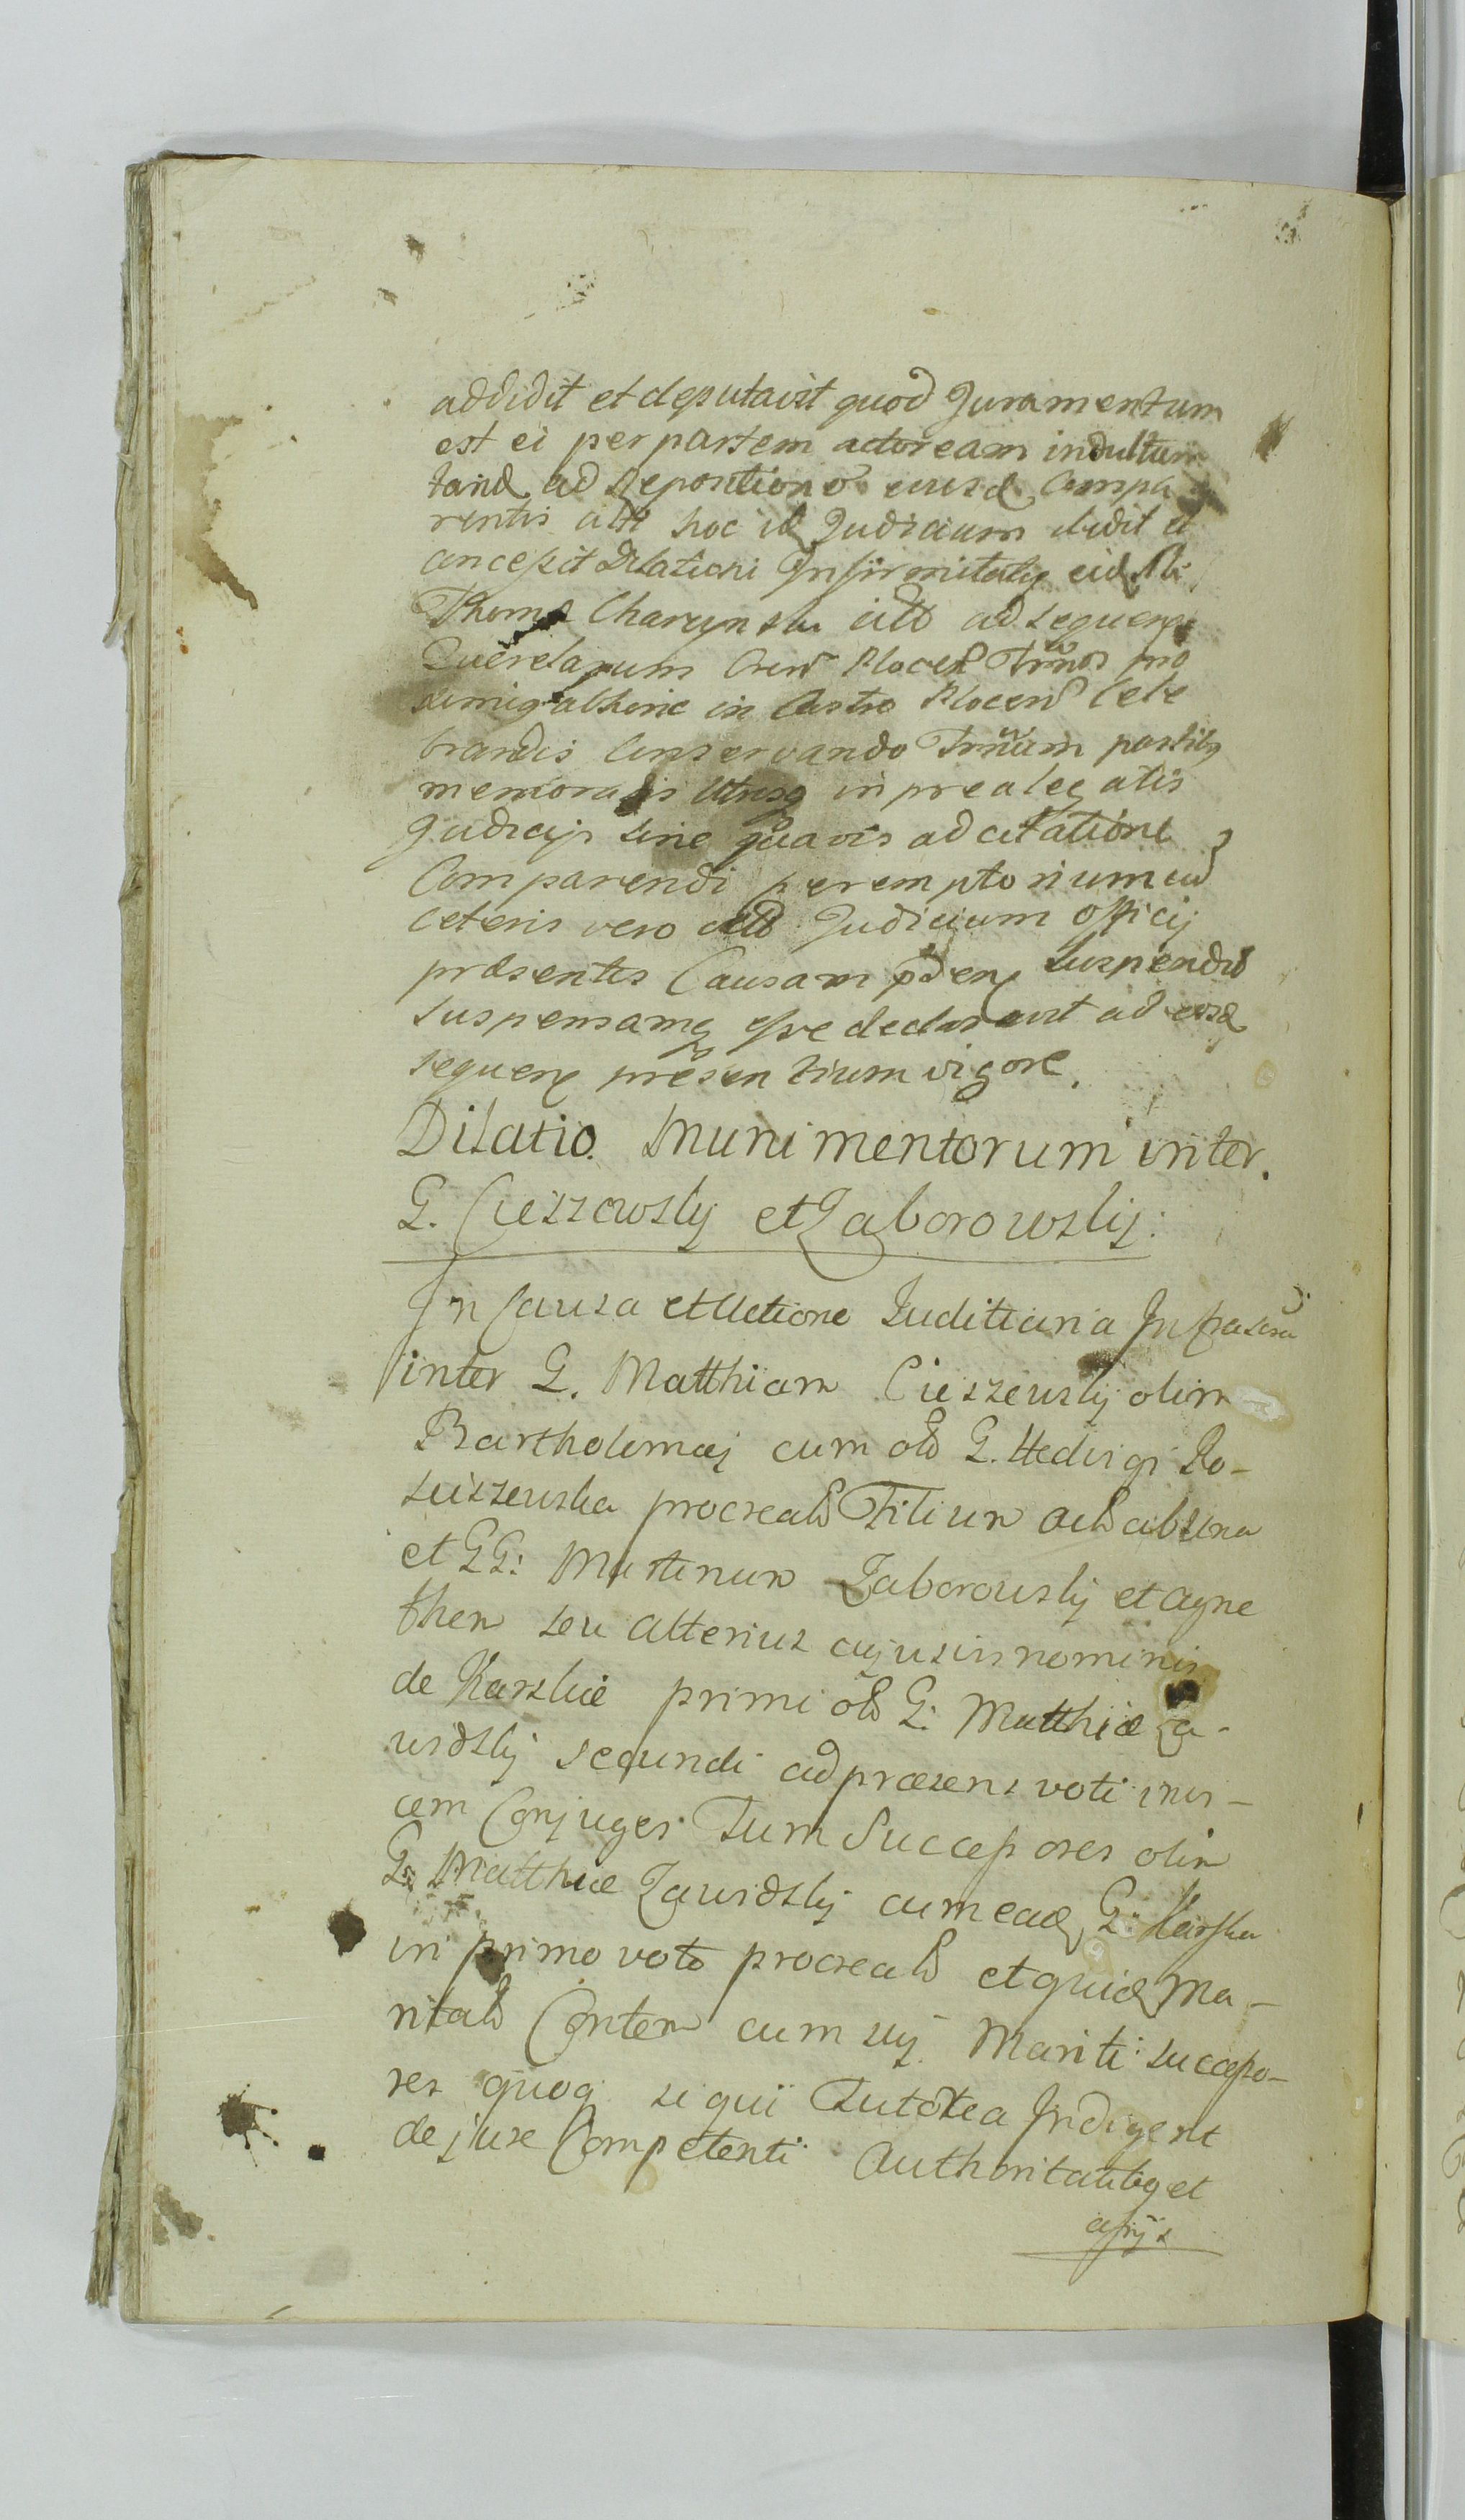 addidit et deputavit quod Juramentum
est ei per partem actoream indultum
tand ad depositionē eiusd Compa
rentis hoc id Judicium dedit et
concessit Dilationi Infirmitatis eid
Thoma Charzynski ad sequen
Querelarum Ploceñ Trmōs pro
ximis abhinc in Castro Plocen Cele
brandis Conservando Trmūm partibq
memoratis Utrisq in prealegatis
Judicijs sine quavis adcitatione
Comparendi peremptorium eid
ceteris vero Judicium Officij
præsentis Causam pden suspendit
suspensamq esse declaravit ad eosd
sequen presentium vigore.
Dilatio Munimentorum inter.
G. Cieszewsky et Zaborowskij:
In Causa et Actione Juditiaria Infrascra
inter G. Matthiam Cieszewskij olim
Bartholomæj cum olō G. Hedvigi Ro-
sciszewska procreatō Filium ab una
et GG: Martinum Zaborowskij et Agne
then seu alterius cujusvis nominis
de Karskie primi olō G: Matthiæ Za-
widskij secundi ad præsens voti invi-
cem Conjuges Tum Successores olim
G: Matthiæ Zawidskij cum ead G: Karska
in primo voto procreatō et quid Ma-
ritatō Conten cum suj Mariti: successo-
res quoq si qui Tutotea Indigent
de jure Competenti Authoritatibq et